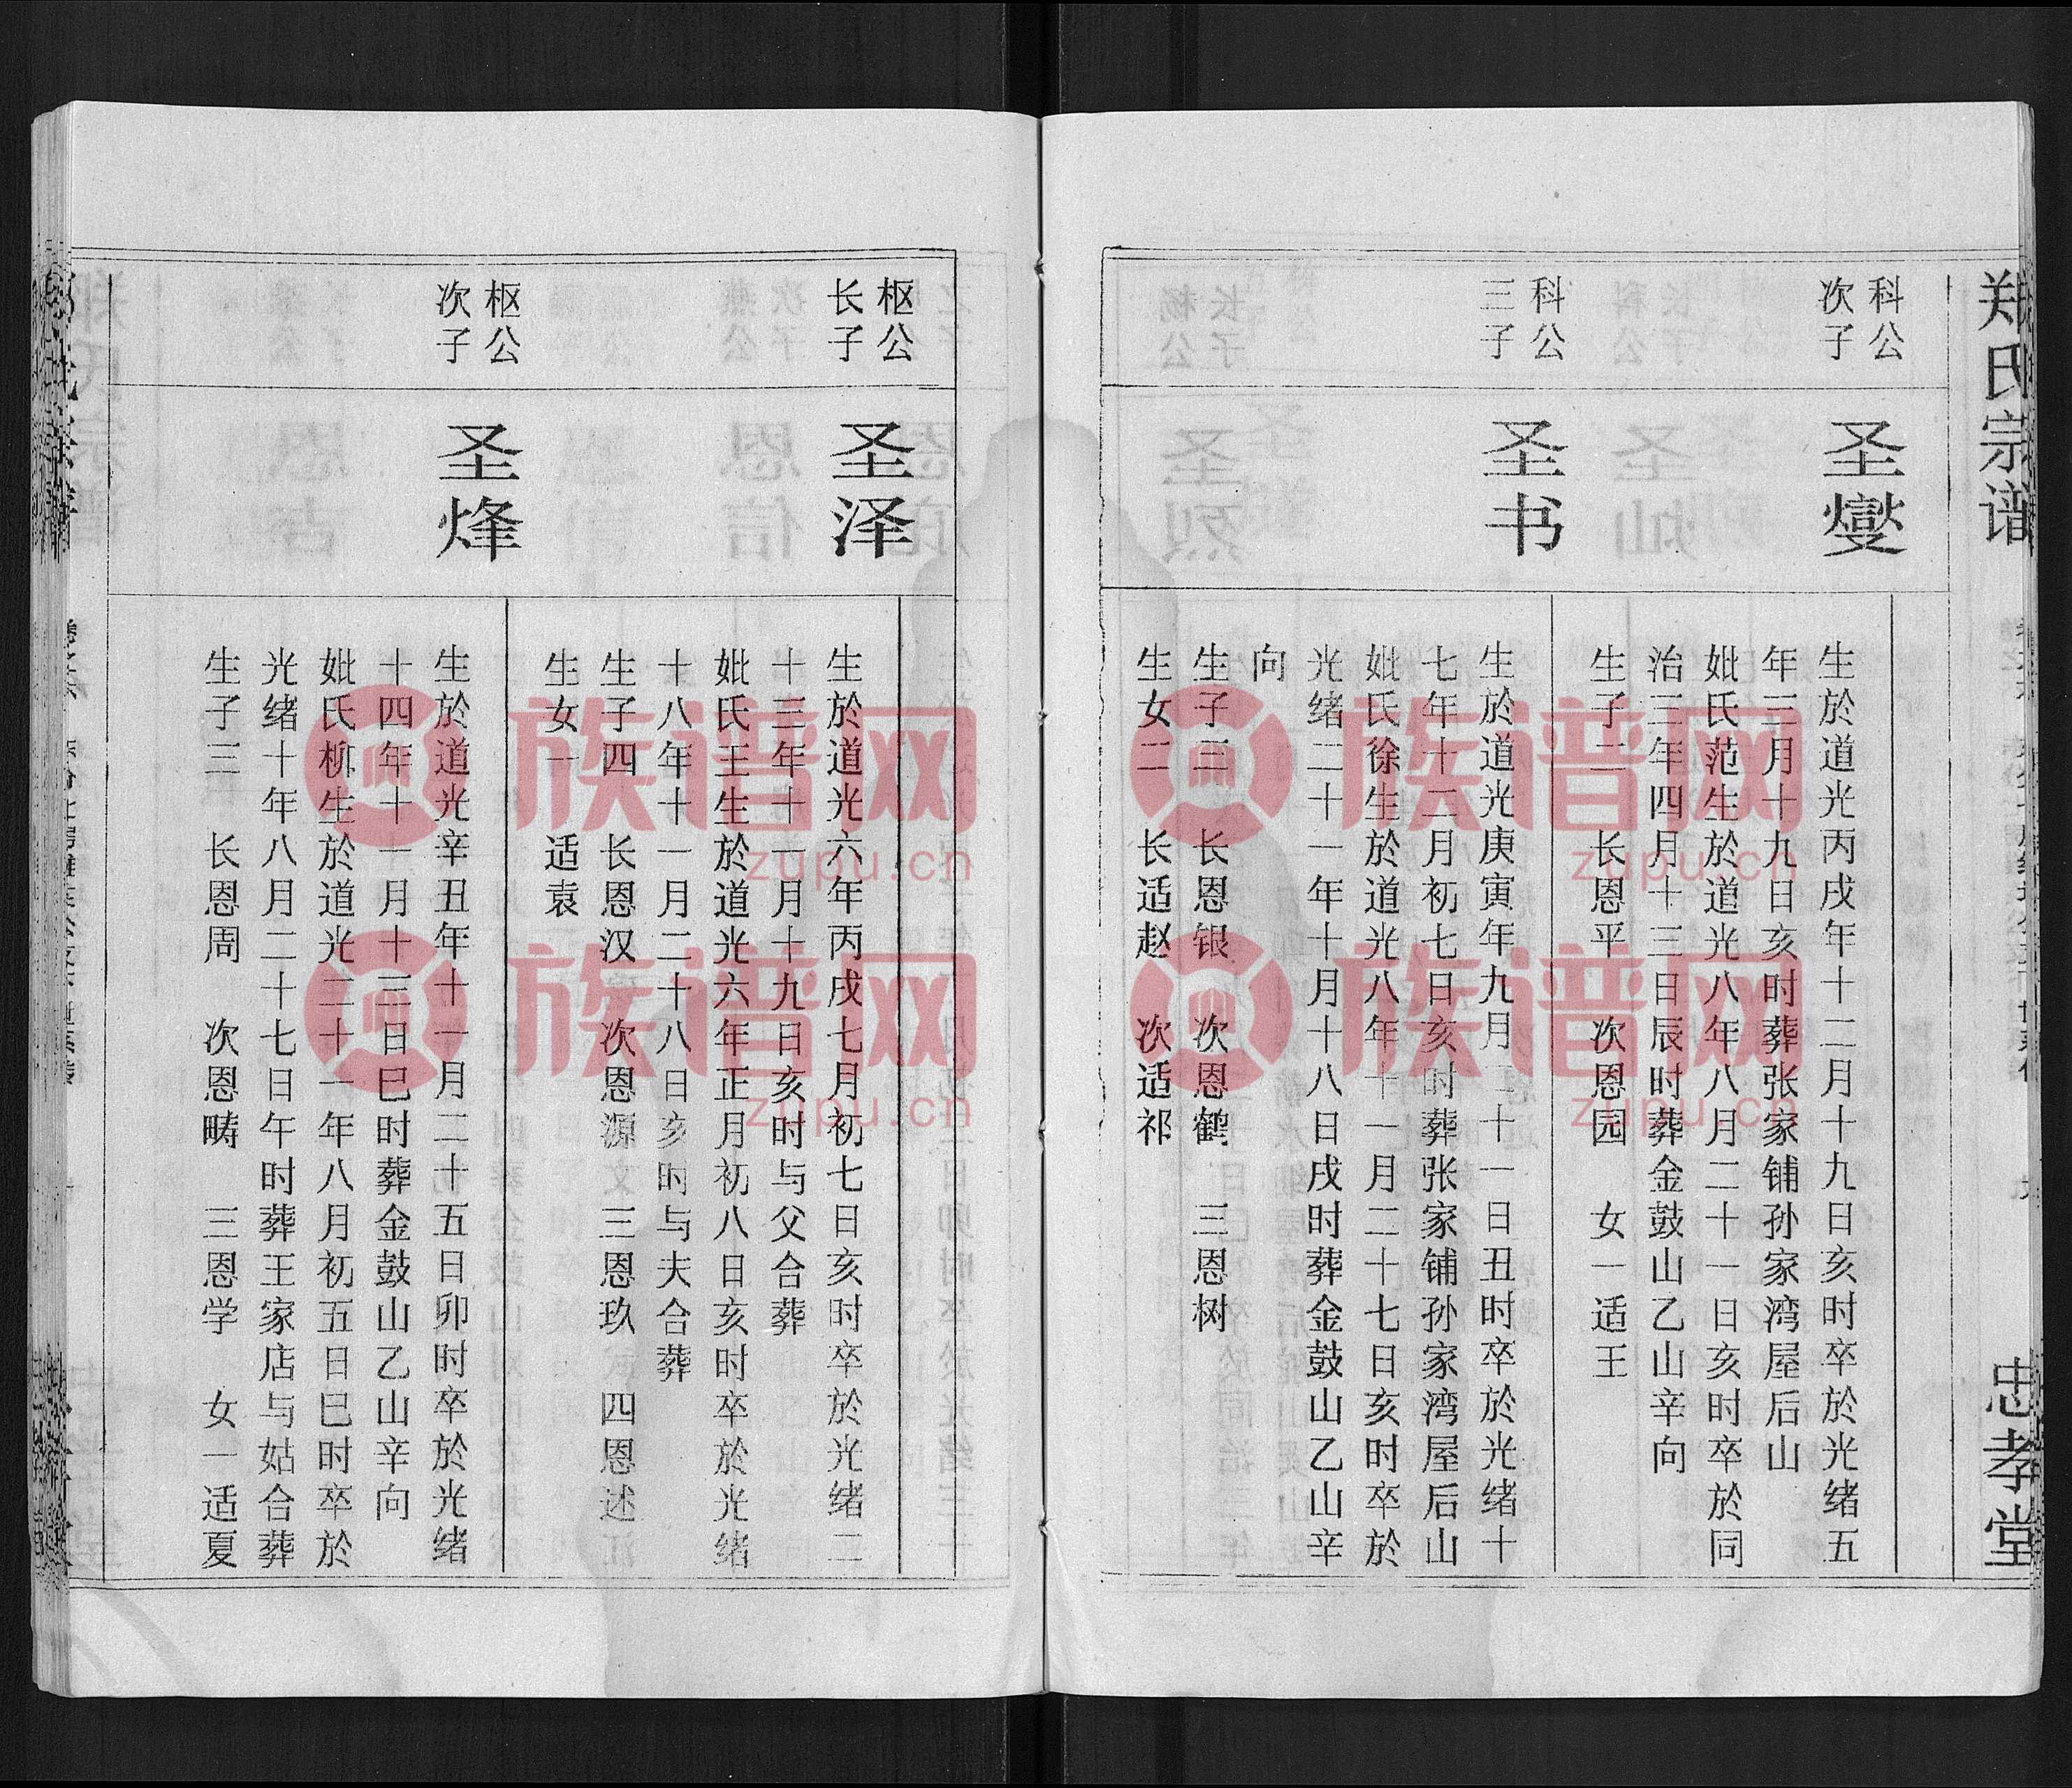 郑氏宗谱
忠孝堂
科公
次子
圣燮
生於道光丙戌年十二月十九日亥时卒於光绪五
年三月十九日亥时葬张家铺孙家湾屋后山
妣氏范生於道光八年八月二十一日亥时卒於同
治三年四月十三日辰时葬金鼓山乙山辛向
生子二 长恩平 次恩园 女一适王
科公
三子
圣书
生於道光庚寅年九月二十一日丑时卒於光绪十
七年十二月初七日亥时葬张家铺孙家湾屋后山
妣氏徐生於道光八年十一月二十七日亥时卒於
光绪二十一年十月十八日戌时葬金鼓山乙山辛
向
生子三 长恩银 次恩鹤 三恩树
生女二 长适赵 次适祁
枢公
长子
圣泽
生於道光六年丙戌七月初七日亥时卒於光绪二
十三年十一月十九日亥时与父合葬
妣氏王生於道光六年正月初八日亥时卒於光绪
十八年十一月二十八日亥时与夫合葬
生子四 长恩汉 次恩源 三恩玖 四恩述
生女一 适袁
枢公
次子
圣烽
生於道光辛丑年十一月二十五日卯时卒於光绪
十四年十一月十三日巳时葬金鼓山乙山辛向
妣氏柳生於道光二十一年八月初五日巳时卒於
光绪十年八月二十七日午时葬王家店与姑合葬
生子三 长恩周 次恩畴 三恩学 女一适夏
族谱网
zupu.cn
族谱网
zupu.cn
族谱网
zupu.cn
族谱网
zupu.cn